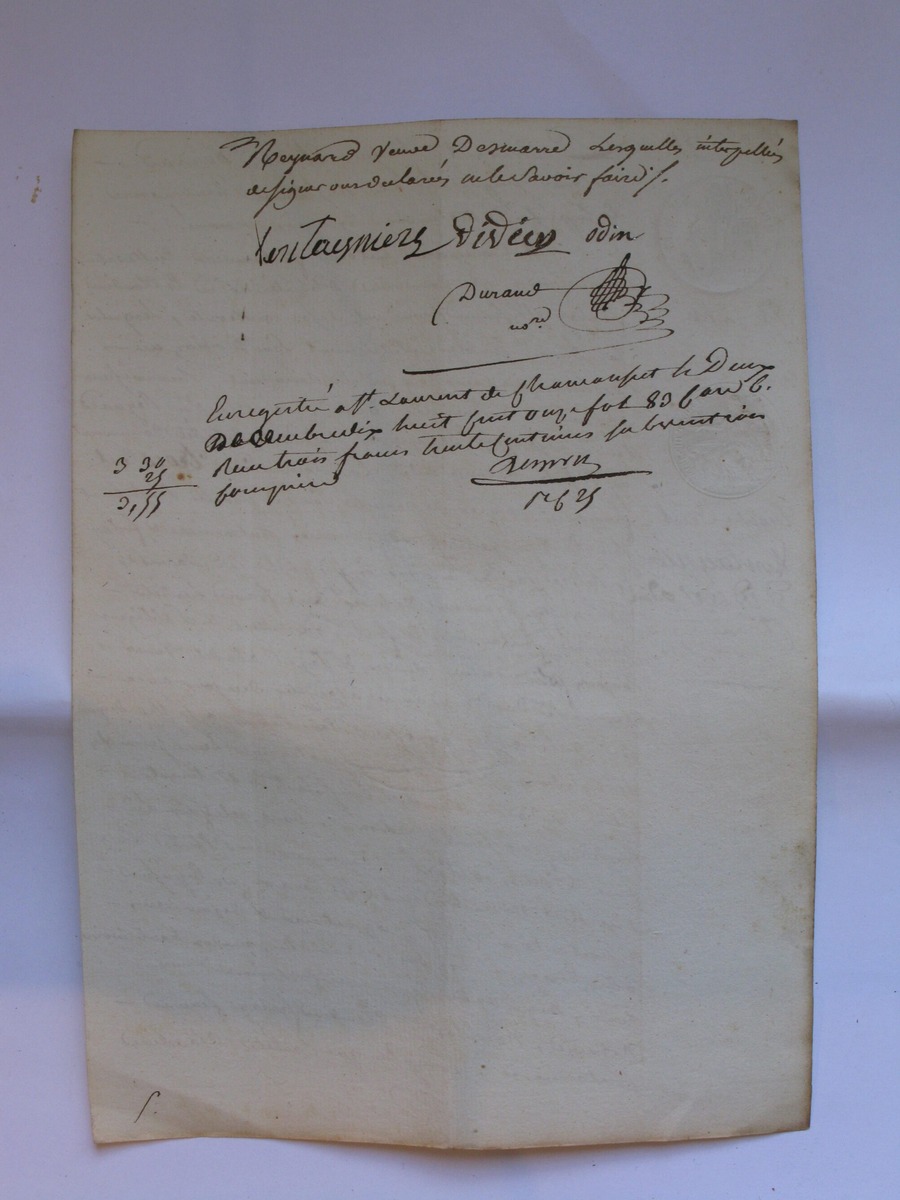 Reynard veuve Desmarre Lesquelles interpellées
de signer ont declarés ne le Savoir faire ./.
odin
Durand
no.re
Enregistré a St. Laurent de Chamousset le Deux
Decembre dix huit cent onze fol 83 C. et 6.
Recu trois francs trente Centimes Subvention
comprise
3 30
25
3,55